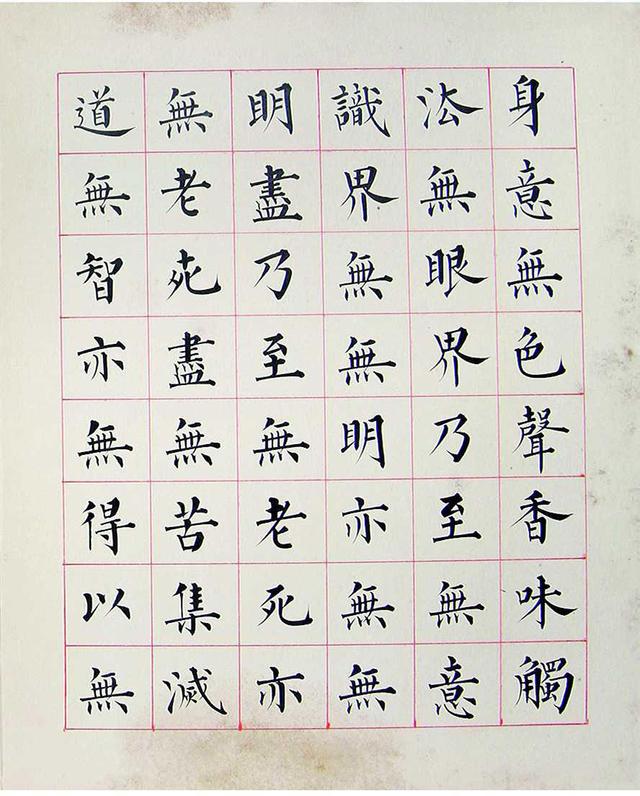 身意無色聲香味觸
法無眼界乃至無意
識界無無明亦無無
明盡乃至無老死亦
無老死盡無苦集滅
道無智亦無得以無